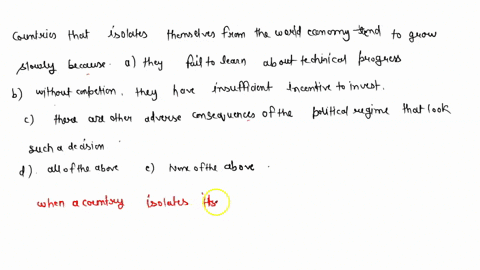 Countries that isolates themselves from the world economy tend to grow
slowly because. a) they fail to learn about technical progress
b) without conpetion, they have insufficient Incentive to invest.
c) there are other adverse consequences of the political regime that look
such a decision
d). all of the above e) None of the above.
when a country isolates its